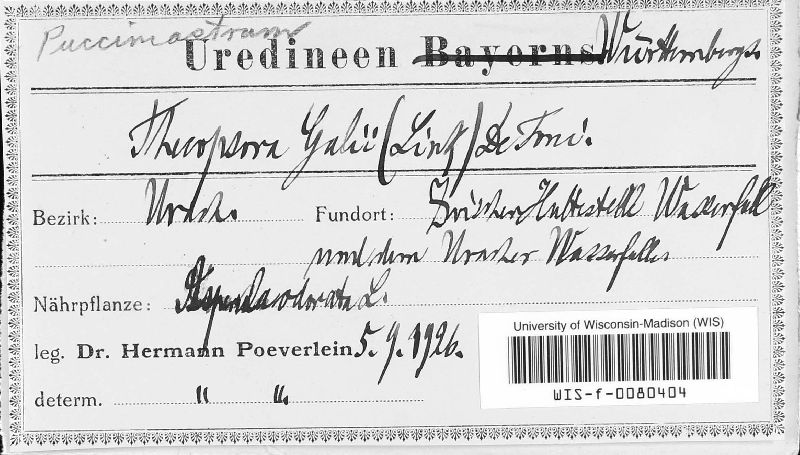 Pucciniastrum
Uredineen Bayerns Württembergs.
Thecopsora Galii (Link) De Toni.
Bezirk: Urach. Fundort: Zwischen Haltestelle Wasserfall
und dem Uracher Wasserfalle.
Nährpflanze: Asperula odorata L.
leg. Dr. Hermann Poeverlein 5. 9. 1926.
determ. " "
University of Wisconsin-Madison (WIS)
WIS-f-0080404